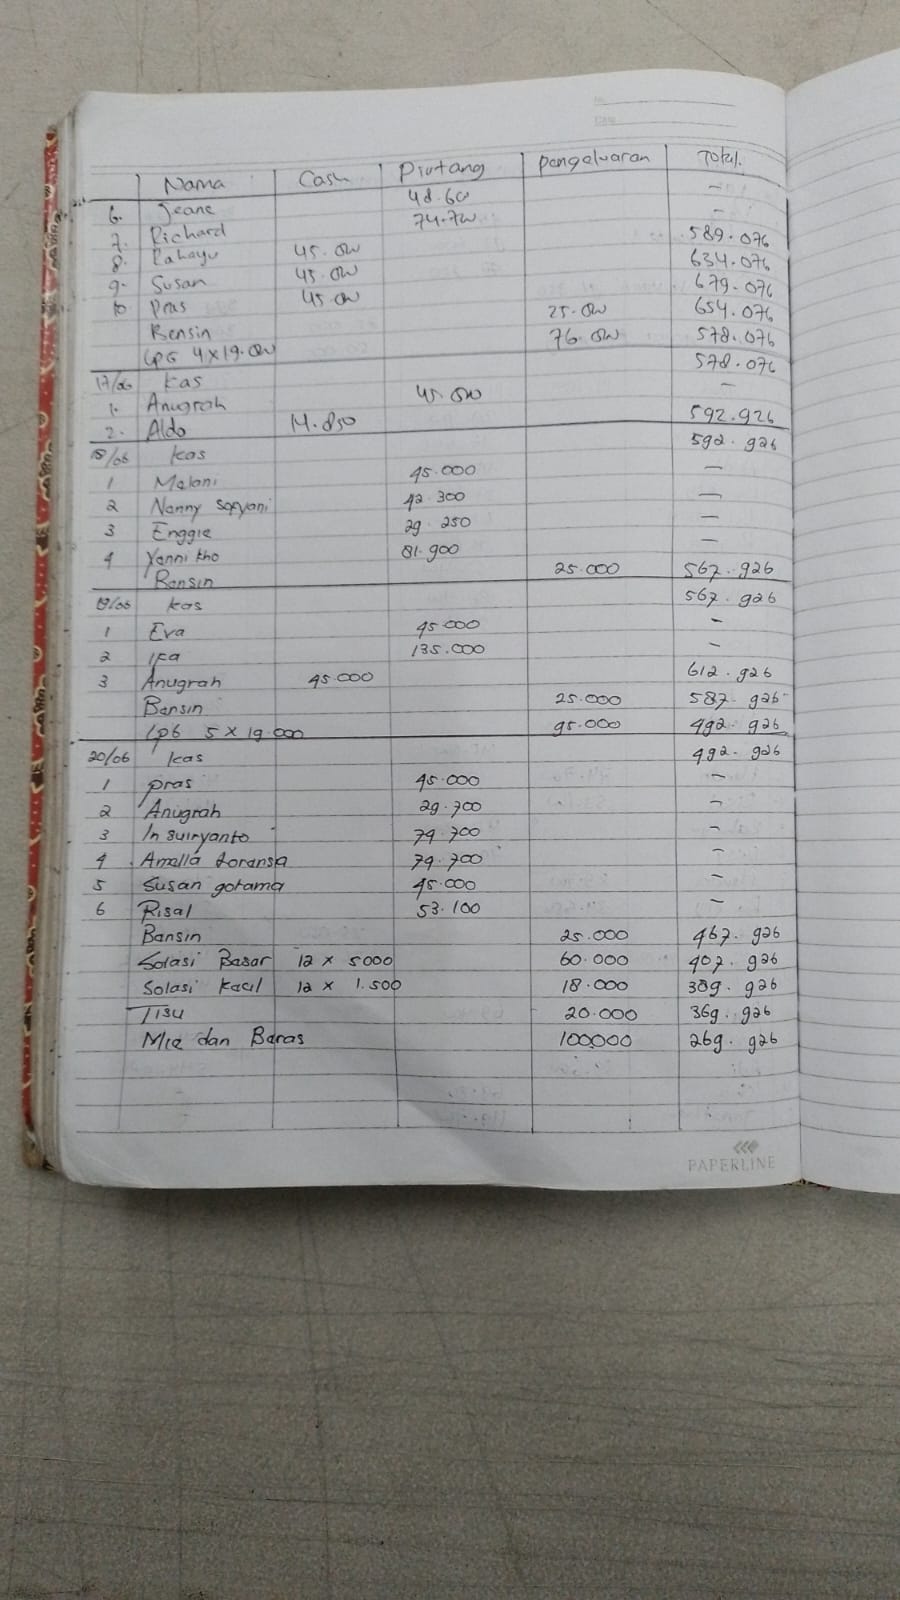 Nama Cash Piutang Pengeluaran Total.
6. Jeane 48.600 -
7. Richard 74.700 -
8. Rahayu 45.000 589.076
9. Susan 45.000 634.076
10 Pras 45.000 679.076
Bensin 25.000 654.076
LPG 4x19.000 76.000 578.076
17/06 kas 578.076
1. Anugrah 45.000 -
2. Aldo 14.850 592.926
18/06 kas 592.926
1 Melani 45.000 -
2 Nanny Sofyani 42.300 -
3 Enggie 29.250 -
4 Yenni kho 81.900 -
Bensin 25.000 567.926
19/06 kas 567.926
1 Eva 45.000 -
2 Ifa 135.000 -
3 Anugrah 45.000 612.926
Bensin 25.000 587.926
LPG 5 x 19.000 95.000 492.926
20/06 kas 492.926
1 Pras 45.000 -
2 Anugrah 29.700 -
3 In suiryanto 79.700 -
4 Amelia Loransa 79.700 -
5 Susan gotama 45.000 -
6 Risal 53.100 -
Bensin 25.000 467.926
Solasi Besar 12 x 5000 60.000 407.926
Solasi Kecil 12 x 1.500 18.000 389.926
Tisu 20.000 369.926
Mie dan Beras 100000 269.926
PAPERLINE